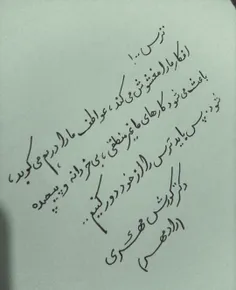 ترس ...!
افکار ما را مغشوش می‌کند، عواطف ما را در هم می‌کوبد،
باعث می‌شود کارهای ما غیر منطقی، بی‌خردانه و پیچیده
شود. پس باید ترس را از خود دور کنیم ...
دکتر کورش